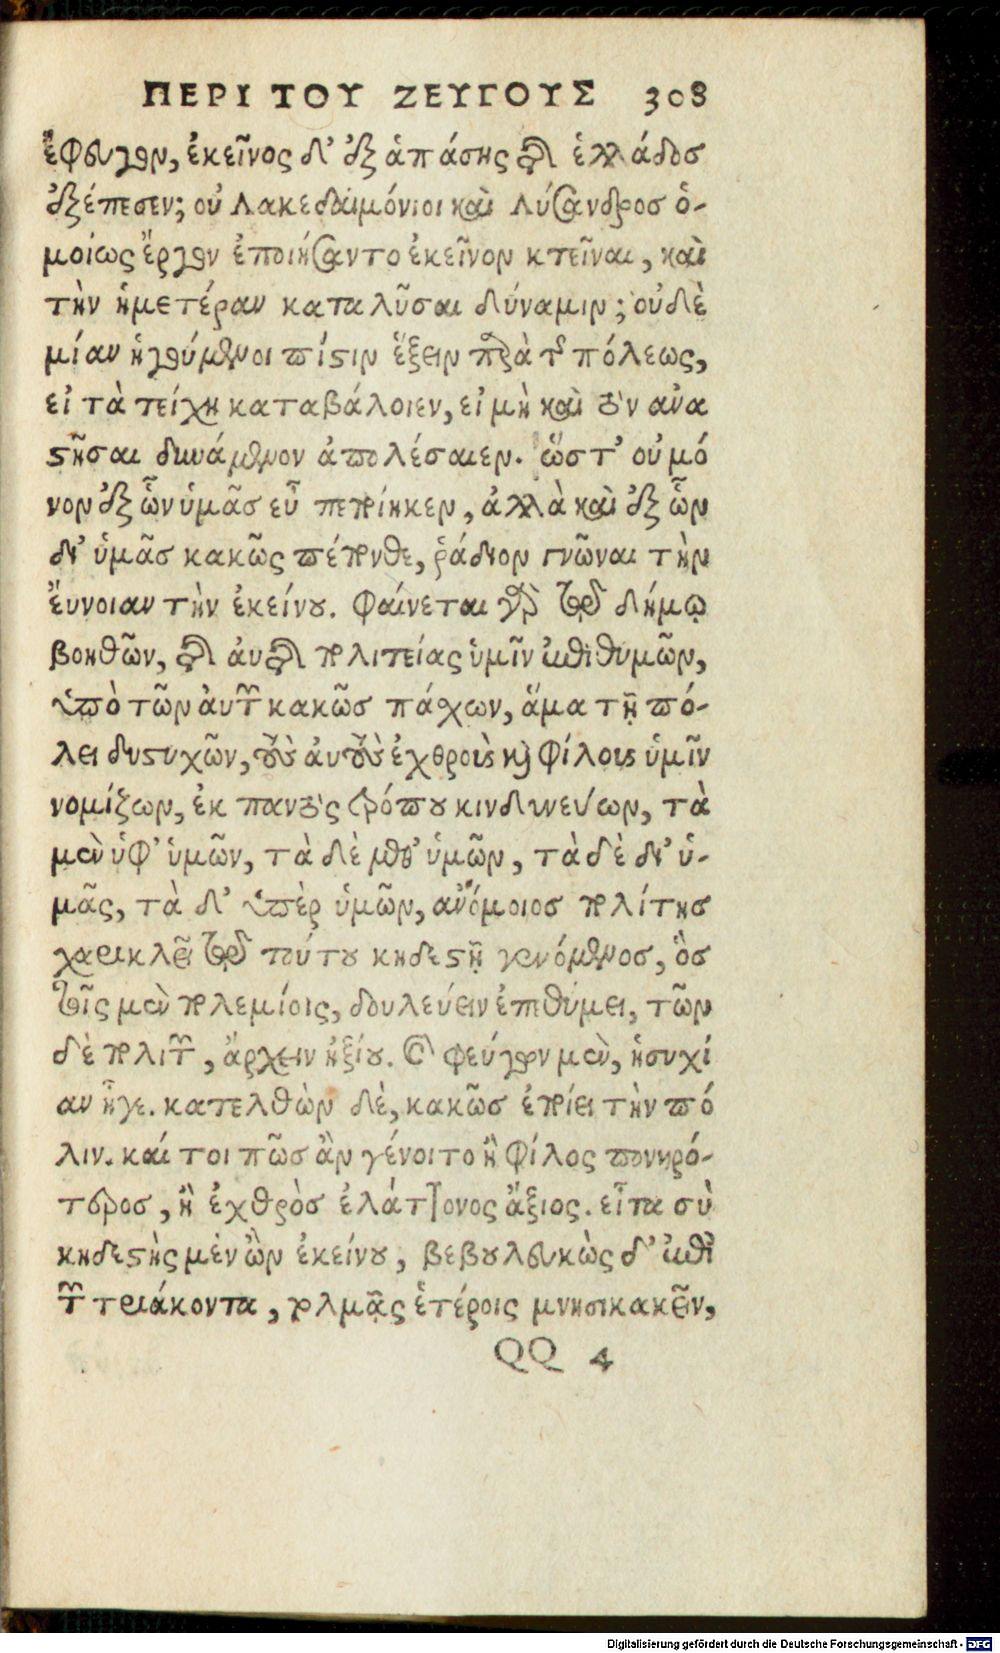 ΠΕΡΙ ΤΟΥ ΖΕΥΓΟΥΣ 308
ἔφευγον, ἐκεῖνος δ' ἐξ ἁπάσης τῆς ἑλλάδος
ἐξέπεσεν; οὐ Λακεδαιμόνιοι καὶ Λύσανδρος ὁ-
μοίως ἔργον ἐποιήσαντο ἐκεῖνον κτεῖναι, καὶ
τὴν ἡμετέραν καταλῦσαι δύναμιν; οὐδὲ
μίαν ἡγούμενοι πίστιν ἕξειν παρὰ τῆς πόλεως,
εἰ τὰ τείχη καταβάλοιεν, εἰ μὴ καὶ τὸν ἀνα
στῆσαι δυνάμενον ἀπολέσαιεν. ὥστ' οὐ μό
νον ἐξ ὧν ὑμᾶς εὖ πεποίηκεν, ἀλλὰ καὶ ἐξ ὧν
δι' ὑμᾶς κακῶς πέπονθε, ῥάδιον γνῶναι τὴν
ἔυνοιαν τὴν ἐκείνου. φαίνεται γὰρ τῷ δήμῳ
βοηθῶν, τῆς αὐτῆς πολιτείας ὑμῖν ἐπιθυμῶν,
ὑπὸ τῶν ἀυτῶν κακῶς πάχων, ἅμα τῇ πό-
λει δυστυχῶν, τοὺς ἀυτοὺς ἐχθροὺς καὶ φίλους ὑμῖν
νομίζων, ἐκ παντὸς τρόπου κινδυνεύων, τὰ
μὲν ὑφ' ὑμῶν, τὰ δὲ μεθ' ὑμῶν, τὰ δὲ δι' ὑ-
μᾶς, τὰ δ' ὑπὲρ ὑμῶν, ἀνόμοιος πολίτης
χαρικλεῖ τῷ τούτου κηδεστῇ γενόμενος, ὃς
τοῖς μὲν πολεμίοις, δουλεύειν ἐπιθύμει, τῶν
δὲ πολιτῶν, ἄρχειν ἠξίου. καὶ φεύγων μὲν, ἡσυχί
αν ἦγε. κατελθὼν δὲ, κακῶς ἐποίει τὴν πό
λιν. καί τοι πῶς ἂν γένοιτο ἢ φίλος πονηρό-
τερος, ἢ ἐχθρὸς ἐλάττονος ἄξιος. εἶτα σὺ
κηδεστὴς μὲν ὢν ἐκείνου, βεβουλευκὼς δ' ἐπὶ
τῶν τριάκοντα, τολμᾷς ἑτέροις μνησικακεῖν,
QQ 4
Digitalisierung gefördert durch die Deutsche Forschungsgemeinschaft - DFG